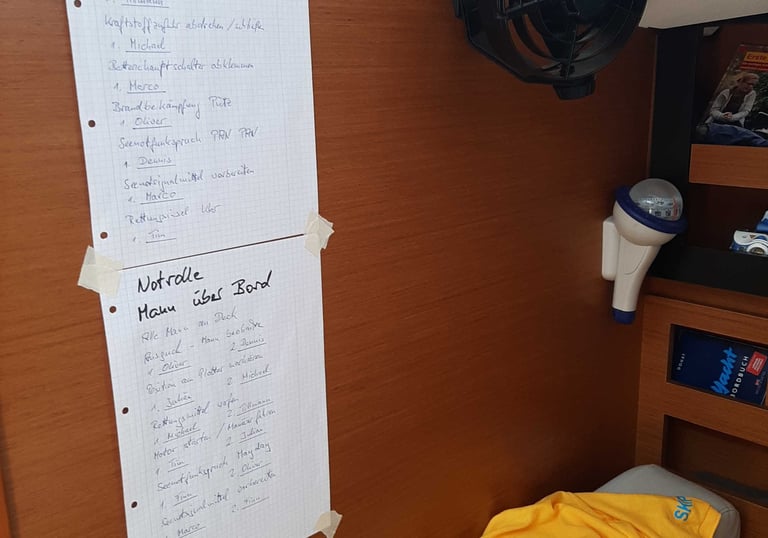 Kraftstoffzufuhr abdrehen / schließen
1. Michael
Batteriehauptschalter abklemmen
1. Marco
Brandbekämpfung Pütz
1. Oliver
Seenotfunkspruch PAN PAN
1. Dennis
Seenotsignalmittel vorbereiten
1. Marco
Rettungsinsel klar
1. Tim
Notrolle
Mann über Bord
Alle Mann an Deck
Ausguck - Mann beobachten
1. Oliver 2. Dennis
Position am Plotter markieren
1. Julien 2. Michael
Rettungsmittel werfen
1. Michael 2. Tillmann
Motor starten / Manöver fahren
1. Tim 2. Julien
Seenotfunkspruch Mayday
1. Finn 2. Oliver
Seenotsignalmittel vorbereiten
1. Marco 2. Finn
Erste
Yacht
BORDBUCH
SKIP